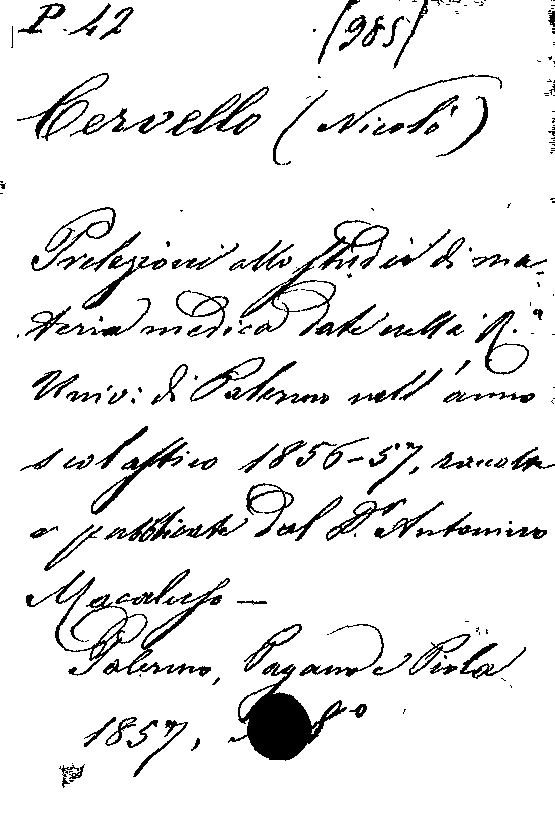 P. 42 (985)
Cervello (Nicolò)
Prelezioni allo studio di ma-
teria medica date nella R.ª
Univ: di Palermo nell'anno
scolastico 1856-57, raccolte
e pubblicate dal D.r Antonino
Macaluso —
Palermo, Pagano e Piola
1857, 8º